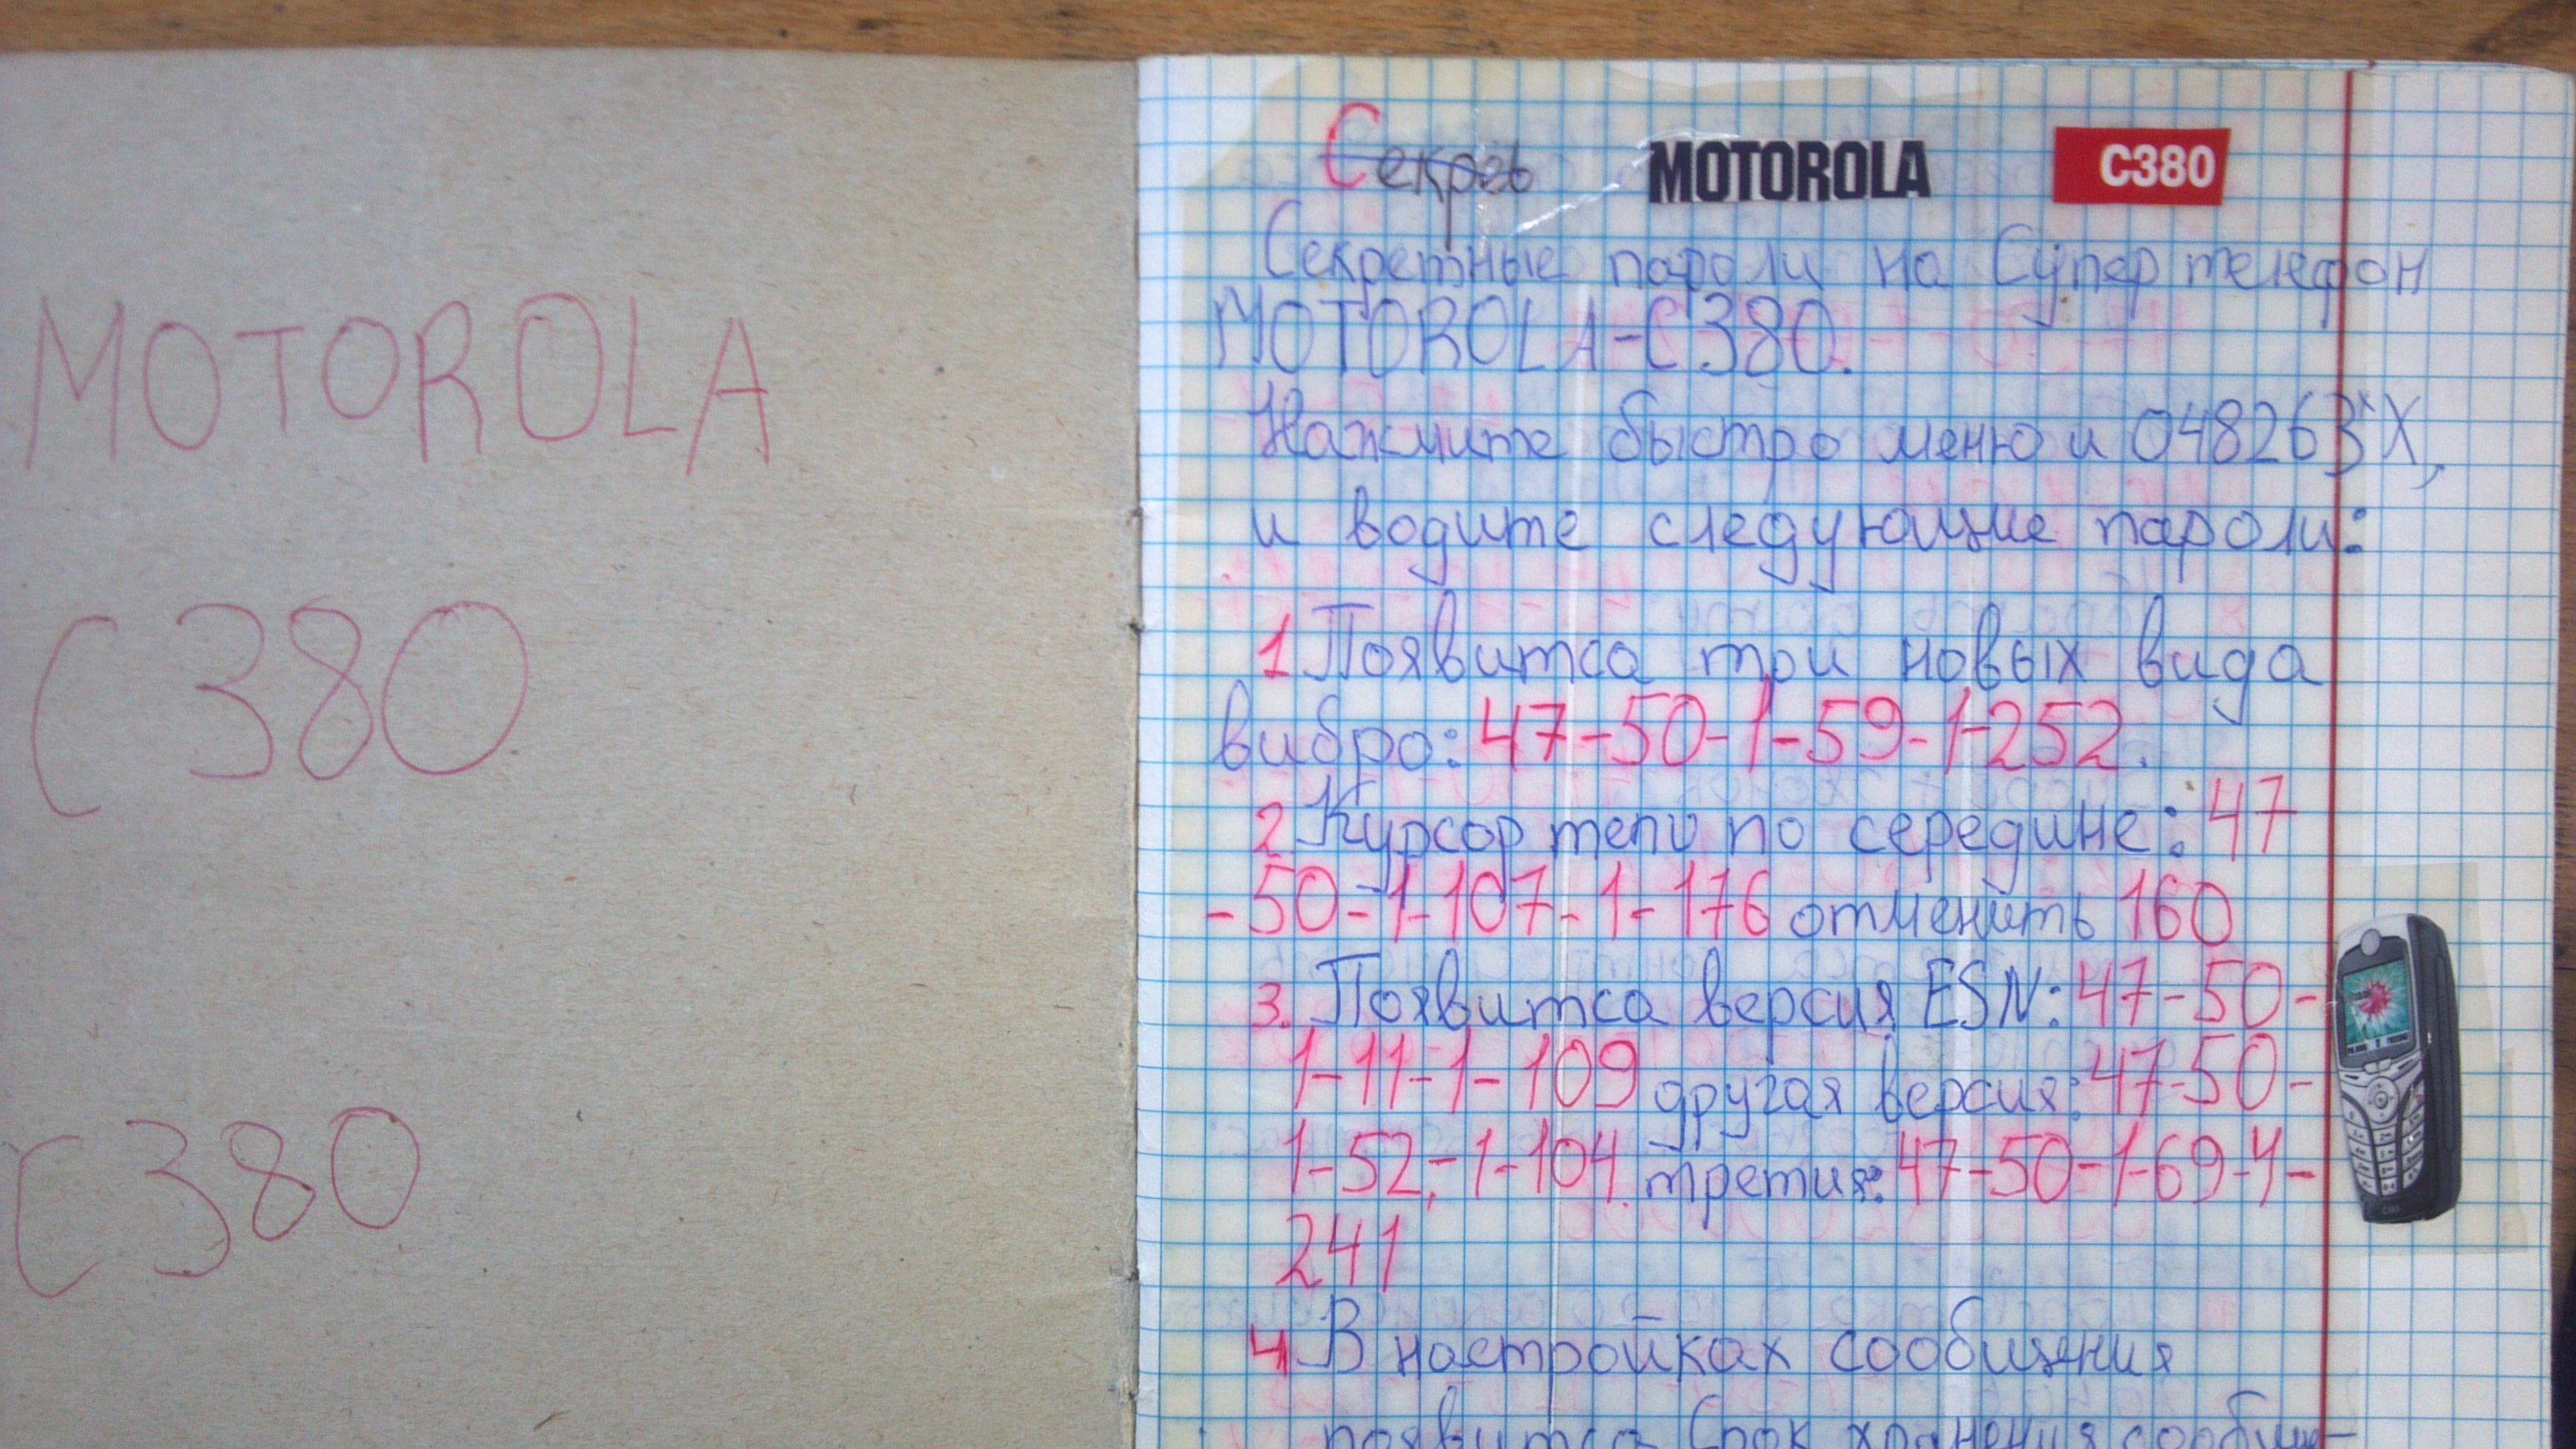 MOTOROLA
C380
C380
MOTOROLA C380
Секретные пароли на Супер телефон
MOTOROLA-C380.
Нажмите быстро меню и 048263*X,
и водите следующие пароли:
1 Появитса три новых вида
вибро: 47-50-1-59-1-252.
2 Курсор по середине: 47
-50-1-107-1-176 отменить 160
3. Появитса версия ESN: 47-50-
1-11-1-109 другая версия: 47-50-
1-52,-1-104. третия: 47-50-1-69-4-
241
4 В настройках сообщения
появитса Срок хранения сообще-